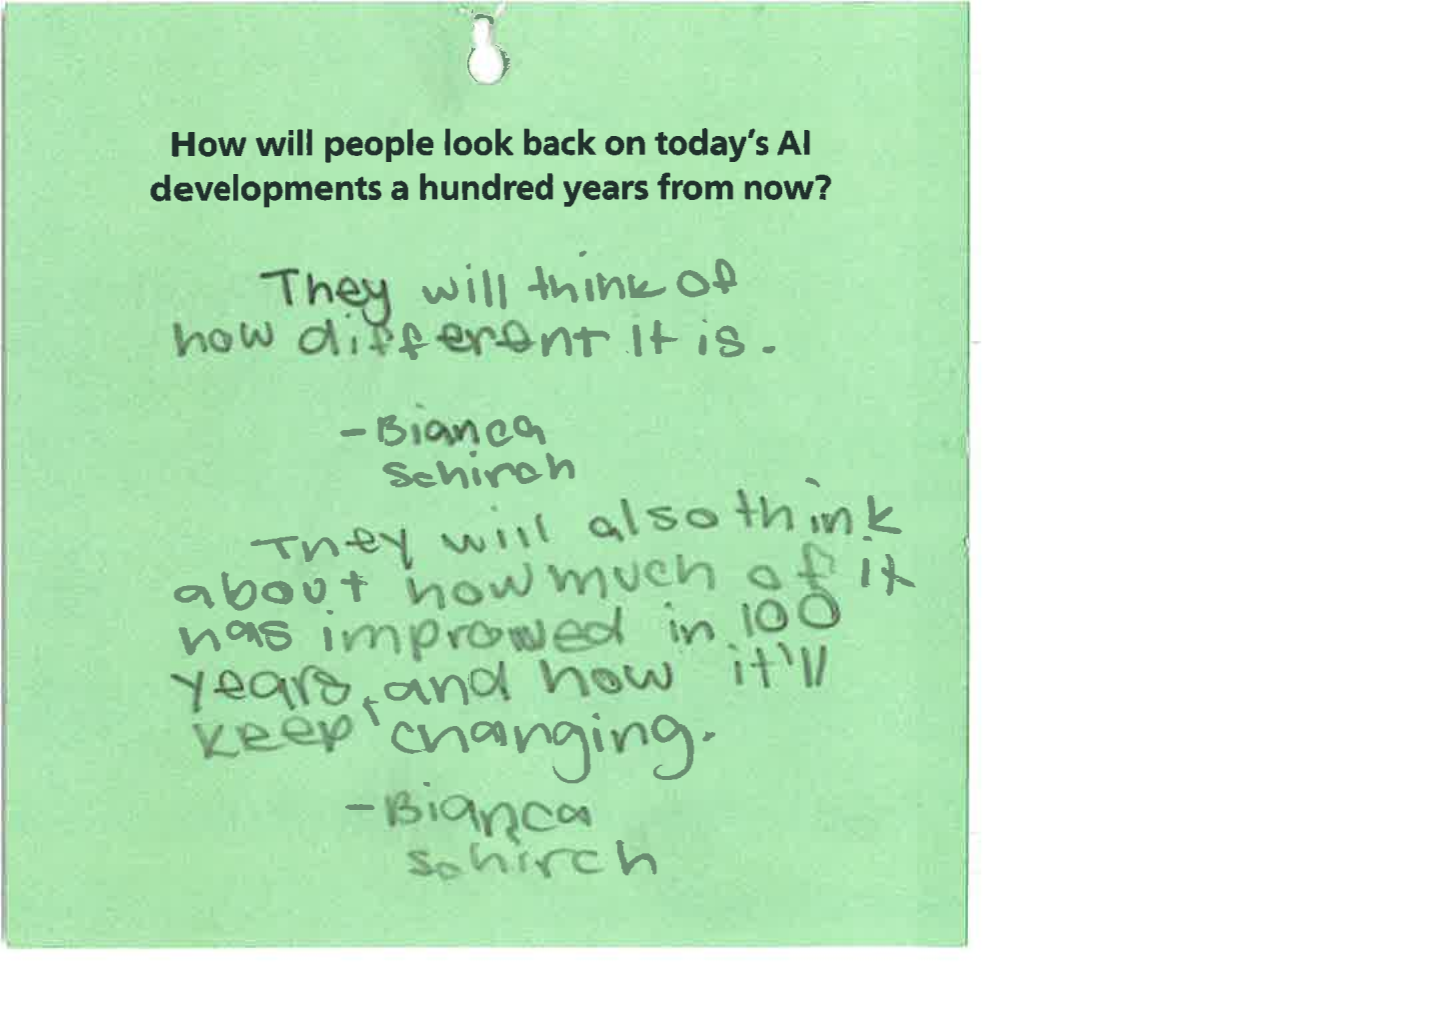 How will people look back on today's AI
developments a hundred years from now?
They will think of
how different it is.
-Bianca
Schirch
They will also think
about how much of it
has improved in 100
years, and how it'll
keep changing.
-Bianca
Schirch